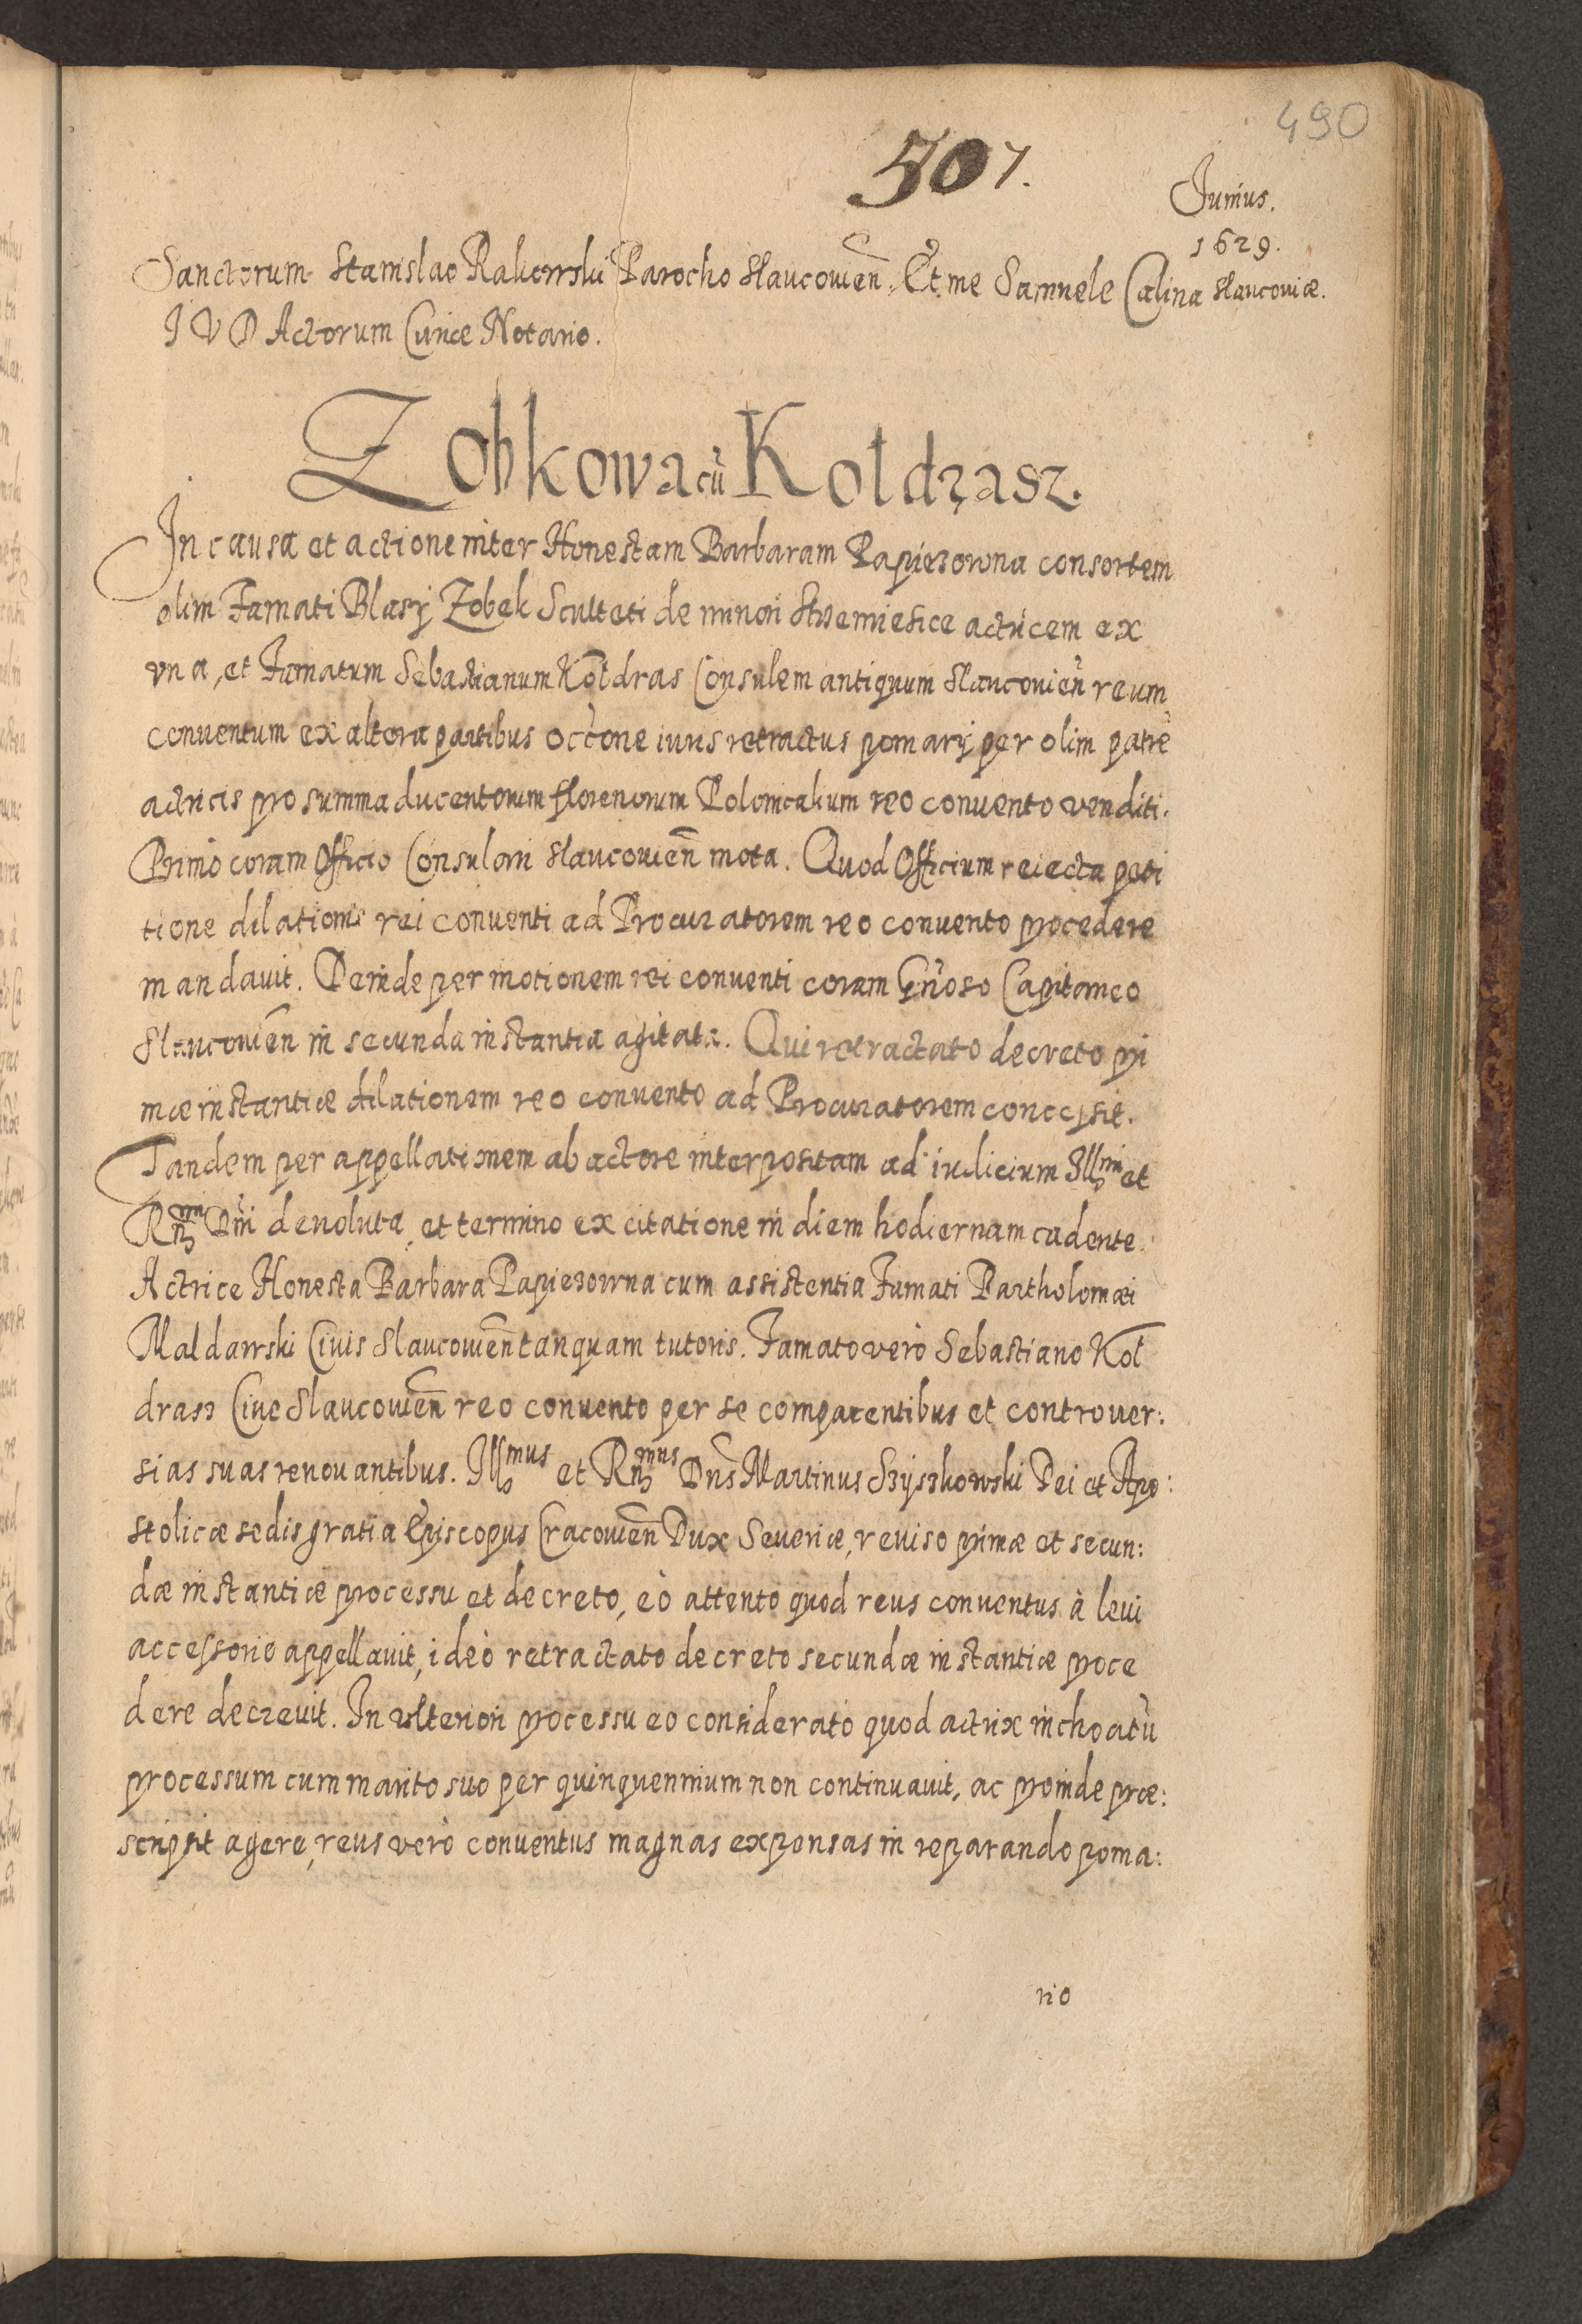 490
507.
Junius.
1629.
Slauconiæ.
Sanctorum Stanislao Rakowski Parocho Slaucouien̄. Et me Samuele Calina
I V D Actorum Curiæ Notario.
Zobkowa cū Kołdrasz.
In causa et actione inter Honestam Barbaram Papiezowna consortem
olim Famati Blasij Zobek Sculteti de minori Strzemiesice actricem ex
vna, et Famatum Sebastianum Kołdras Consulem antiquum Slaucouien̄ reum
conuentum ex altera partibus occ̄one iuris retractus pomarij per olim patrē
actricis pro summa ducentorum florenorum Polonicalium reo conuento venditi.
Primò coram Officio Consulari Slaucouien̄ mota. Quod Officium reiecta peti
tione dilationis rei conuenti ad Procuratorem reo conuento procedere
mandauit. Deinde per motionem rei conuenti coram Gn̄oso Capitaneo
Slaucouien̄ in secunda instantia agitata. Qui retractato decreto pri
mæ instantiæ dilationem reo conuento ad Procuratorem concessit.
Tandem per appellationem ab actore interpositam ad iudicium Illmi et
Rn̄mi Dn̄i deuoluta, et termino ex citatione in diem hodiernam cadente.
Actrice Honesta Barbara Papiezowna cum assistentia Famati Bartholomæi
Maldawski Ciuis Slaucouien̄ tanquam tutoris. Famato verò Sebastiano Koł
drasz Ciue Slaucouien̄ reo conuento per se comparentibus et controuer:
sias suas renouantibus. Illmus et Rn̄mus Dn̄s Martinus Szyszkowski Dei et Apo:
stolicæ sedis gratia Episcopus Cracouien̄ Dux Seueriæ, reuiso primæ et secun:
dæ instantiæ processu et decreto, eò attento quod reus conuentus à leui
accessorio appellauit, ideò retractato decreto secundæ instantiæ proce
dere decreuit. In vlteriori processu eo considerato quod actrix inchoatū
processum cum marito suo per quinquennium non continuauit, ac proinde præ:
scripsit agere, reus verò conuentus magnas expensas in reparando poma:
rio